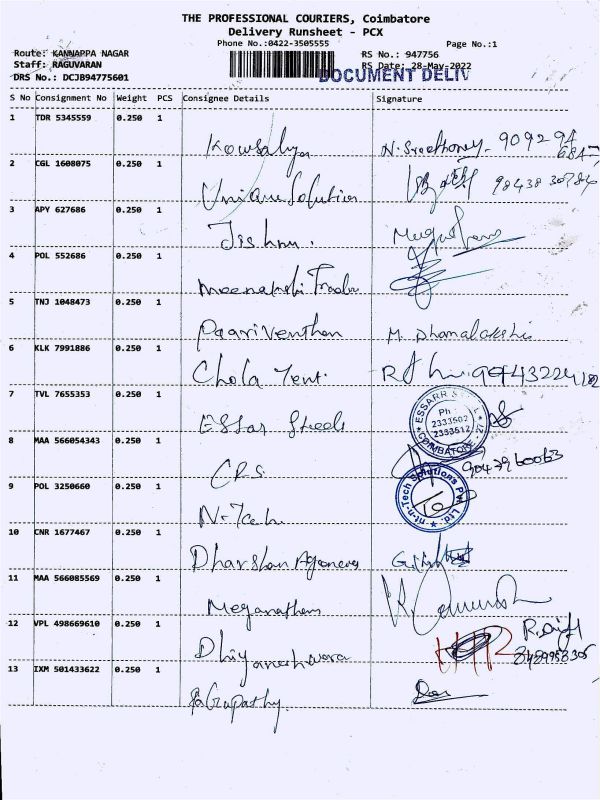 THE PROFESSIONAL COURIERS, Coimbatore
Delivery Runsheet - PCX
Phone No.:0422-3505555 Page No.:1
Route: KANNAPPA NAGAR RS No.: 947756
Staff: RAGUVARAN RS Date: 28-May-2022
DRS No.: DCJB94775601 DOCUMENT DELIV
S No Consignment No Weight PCS Consignee Details Signature
1 TDR 5345559 0.250 1
Kowsalya
2 CGL 1608075 0.250 1
Unique Solution
3 APY 627686 0.250 1
Jishnu.
4 POL 552686 0.250 1
Meenakshi Trader
5 TNJ 1048473 0.250 1
Paariventhan M. Dhanalakshi
6 KLK 7991886 0.250 1
Chola Tent.
7 TVL 7655353 0.250 1
ESSARR
Ph
2333502
2333512
COIMBATORE - 27
Essar Steels
8 MAA 566054343 0.250 1
CRS 9043960063
9 POL 3250660 0.250 1
nt-n-Tech Solutions Pvt. Ltd.
N-Tech
10 CNR 1677467 0.250 1
Dharshan Agencies
11 MAA 566085569 0.250 1
Meganathan
12 VPL 498669610 0.250 1
Dhiyaneshwara
13 IXM 501433622 0.250 1
Gupathy